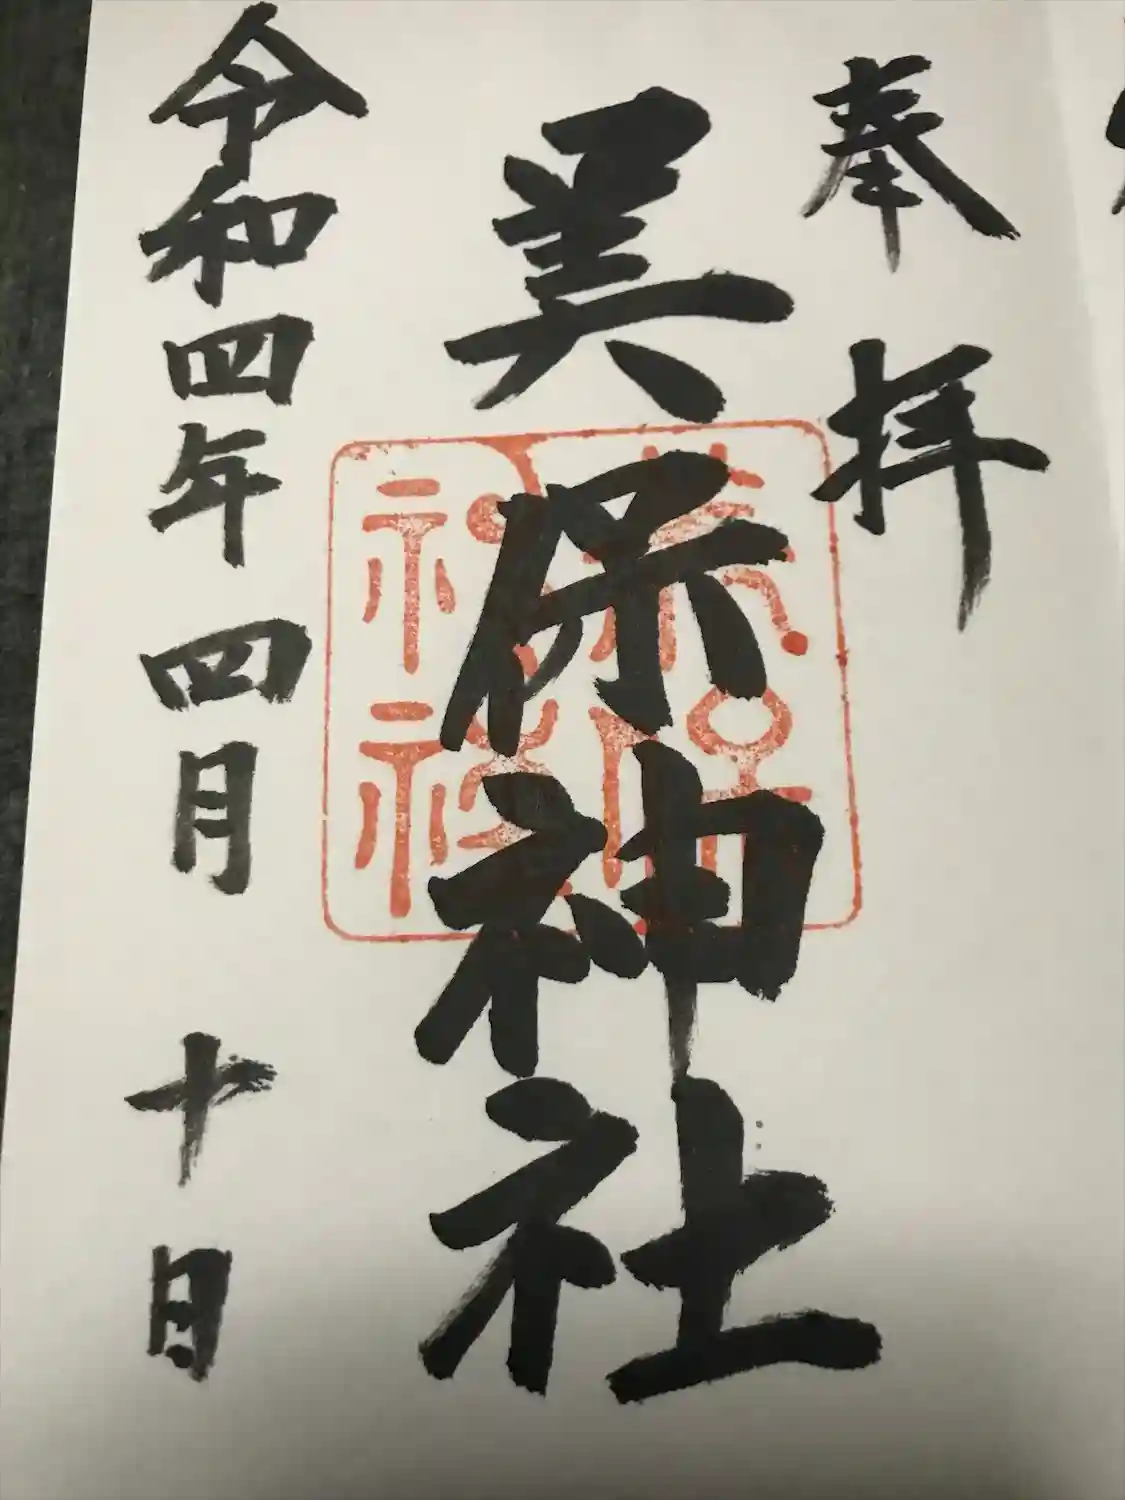 奉拝
美保神社
令和四年 四月 十日